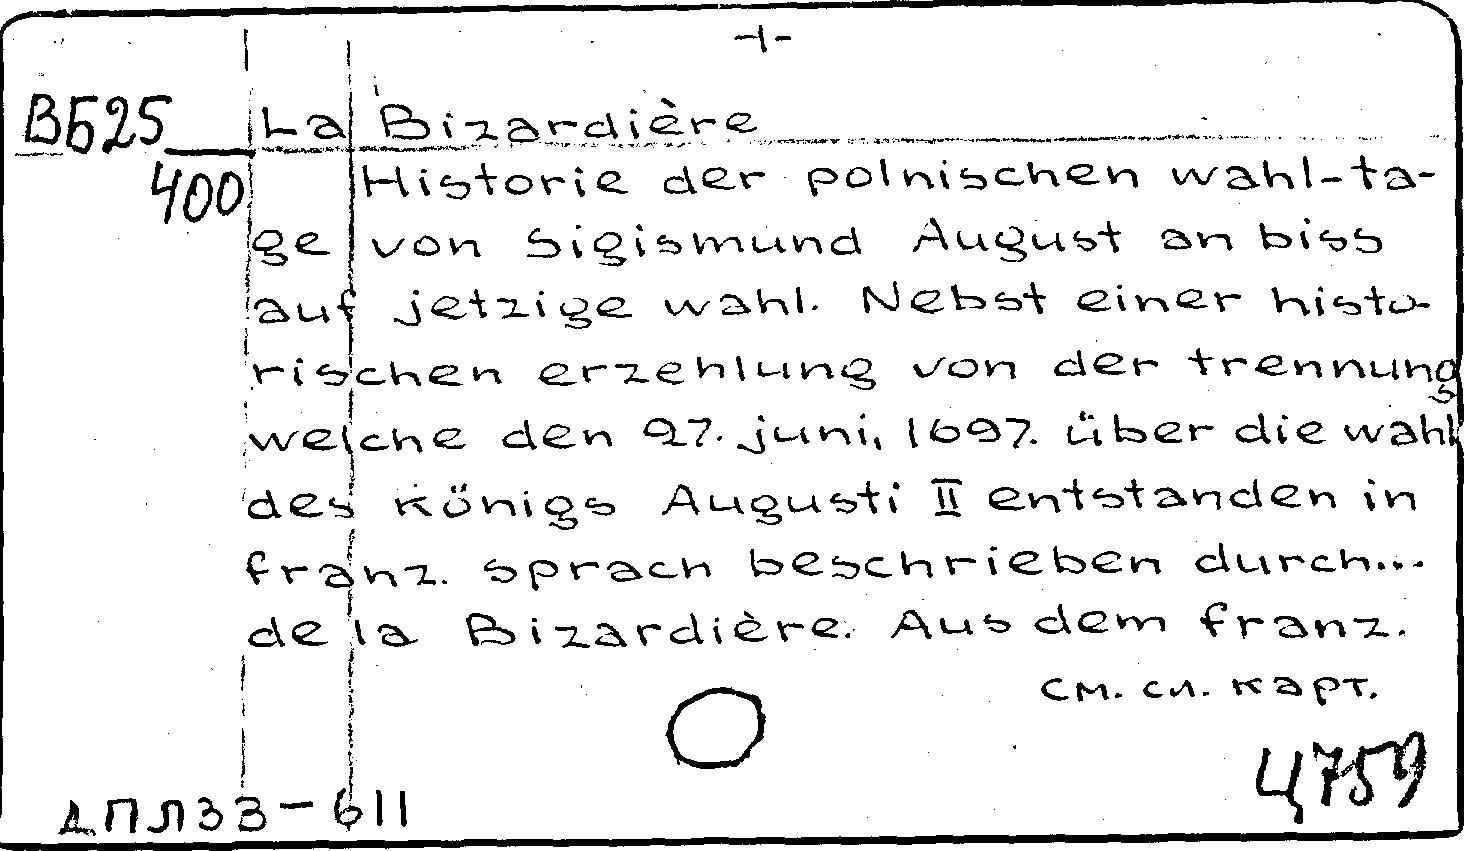 -I-
ВБ25 La Bizardière
400 Historie der polnischen wahl-ta-
ge von Sigismund August an biss
auf jetzige wahl. Nebst einer histo-
rischen erzehlung von der trennung
welche den 27. juni, 1697. über die wahl
des königs Augusti II entstanden in
franz. sprach beschrieben durch...
de la Bizardière. Aus dem franz.
см. сл. карт.
Ц759
ДПЛ33-611